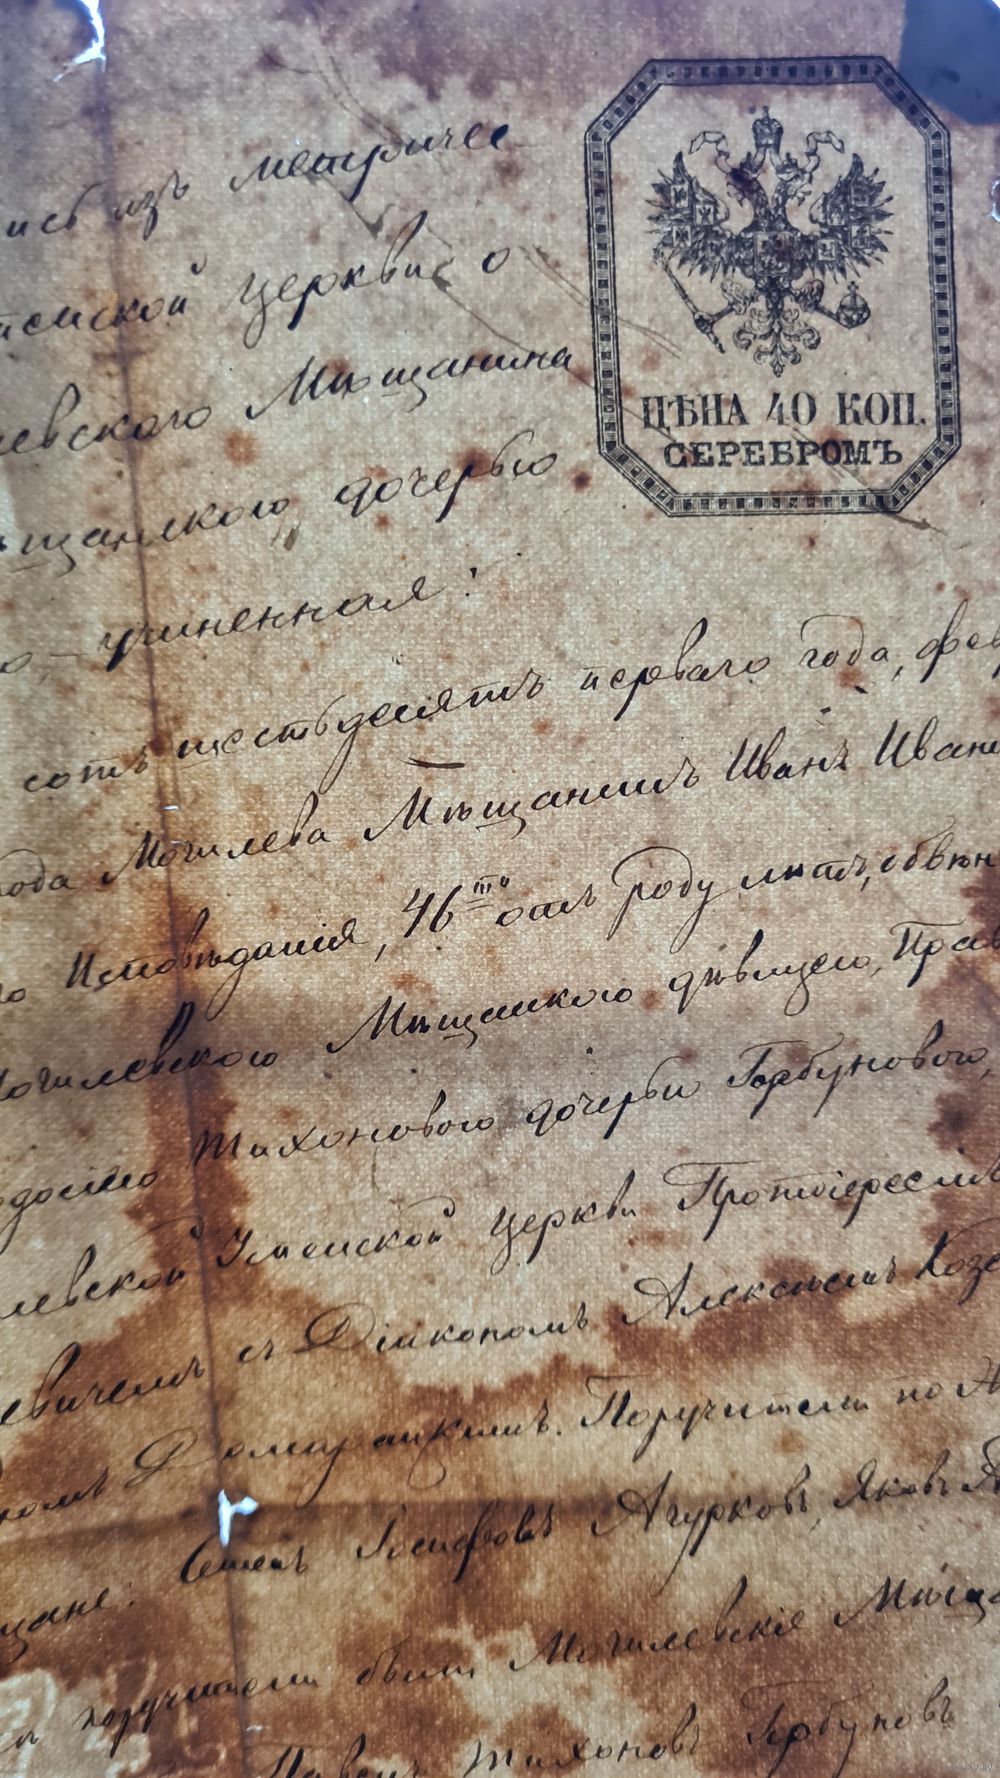 ись изъ метричес
ской церкви о
евского Мѣщанина
щанскою дочерью
учиненная:
ЦѢНА 40 КОП.
СЕРЕБРОМЪ
сотъ шестьдесятъ перваго года, фев
рода Могилева Мѣщанинъ Иванъ Ивано
Исповѣданія, 46ти отъ роду лѣтъ, обвѣн
Могилевскою Мѣщанскою дѣвицею, Прав
Тихоновою дочерью Горбуновою,
левской Успенской церкви Протоіереемъ
евичемъ съ Діакономъ Алексѣемъ Козе
номъ Поручители по
щане: Семенъ Іосифовъ Агурковъ, Яковъ
поручители были Могилевскіе Мѣща
Павелъ Тихоновъ Горбуновъ